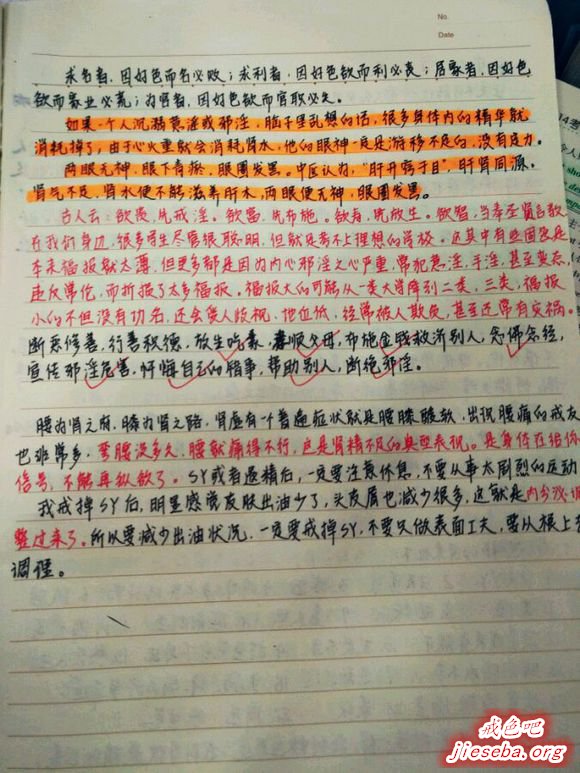 No.
Date
求名者,因好色而名必败;求利者,因好色欲而利必丧;居家者,因好色
欲而家业必荒;为官者,因好色欲而官职必失。
如果一个人沉溺意淫或邪淫,脑子里乱想的话,很多身体内的精华就
消耗掉了,由于心火重就会消耗肾水,他的眼神一定是游移不定的,没有定力。
两眼无神,眼下青瘀,眼圈发黑。中医认为,“肝开窍于目”,肝肾同源。
肾气不足,肾水便不能滋养肝木,两眼便无神,眼圈发黑。
古人云:欲贵,先戒淫。欲富,先布施。欲寿,先放生。欲智,当奉圣贤言教
在我们身边,很多考生尽管很聪明,但就是考不上理想的学校。这其中有些固然是
本来福报就太薄,但更多都是因为内心邪淫之心严重,常犯意淫,手淫,甚至
违反常伦,而折损了太多福报。福报大的可能从一类大学降到二类,三类,福报
小的不但没有功名,还会受人歧视,地位低,经常被人欺负,甚至还常有灾祸。
断恶修善,行善积德,放生吃素,孝顺父母,布施金钱救济别人,念佛念经,
宣传邪淫危害,忏悔自己的错事,帮助别人,断绝邪淫。
腰为肾之府,膝为肾之路,肾虚有一个普遍症状就是腰膝酸软,出现腰痛的戒友
也非常多,弯腰没多久,腰就痛得不行,这是肾精不足的典型表现。是身体在给你
信号,不能再纵欲了。SY或者遗精后,一定要注意休息,不要从事太剧烈的运动
我戒掉SY后,明显感觉皮肤出油少了,头皮屑也减少很多,这就是内分泌调
整过来了。所以要减少出油状况,一定要戒掉SY,不要只做表面工夫,要从根上去
调理。
戒色吧
jieseba.org